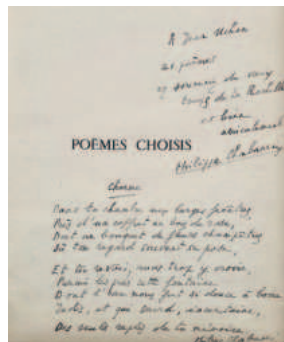 A Jean
ces poèmes
et souvenir de
temps de la Rochelle
et bien
amicalement
Philippe Chabaneix
POÈMES CHOISIS
Dans ta chambre aux larges fenêtres,
Près d'un coffret en bois de rose,
Dont un bouquet de fleurs champêtres
Où ton regard souvent se pose,
Et te revoir, sans trop y croire,
Parmi les prés cette fontaine
Dont l'eau nous fut si douce à boire
Jadis, et qui sourd, incertaine,
Des seuls de ta mémoire.